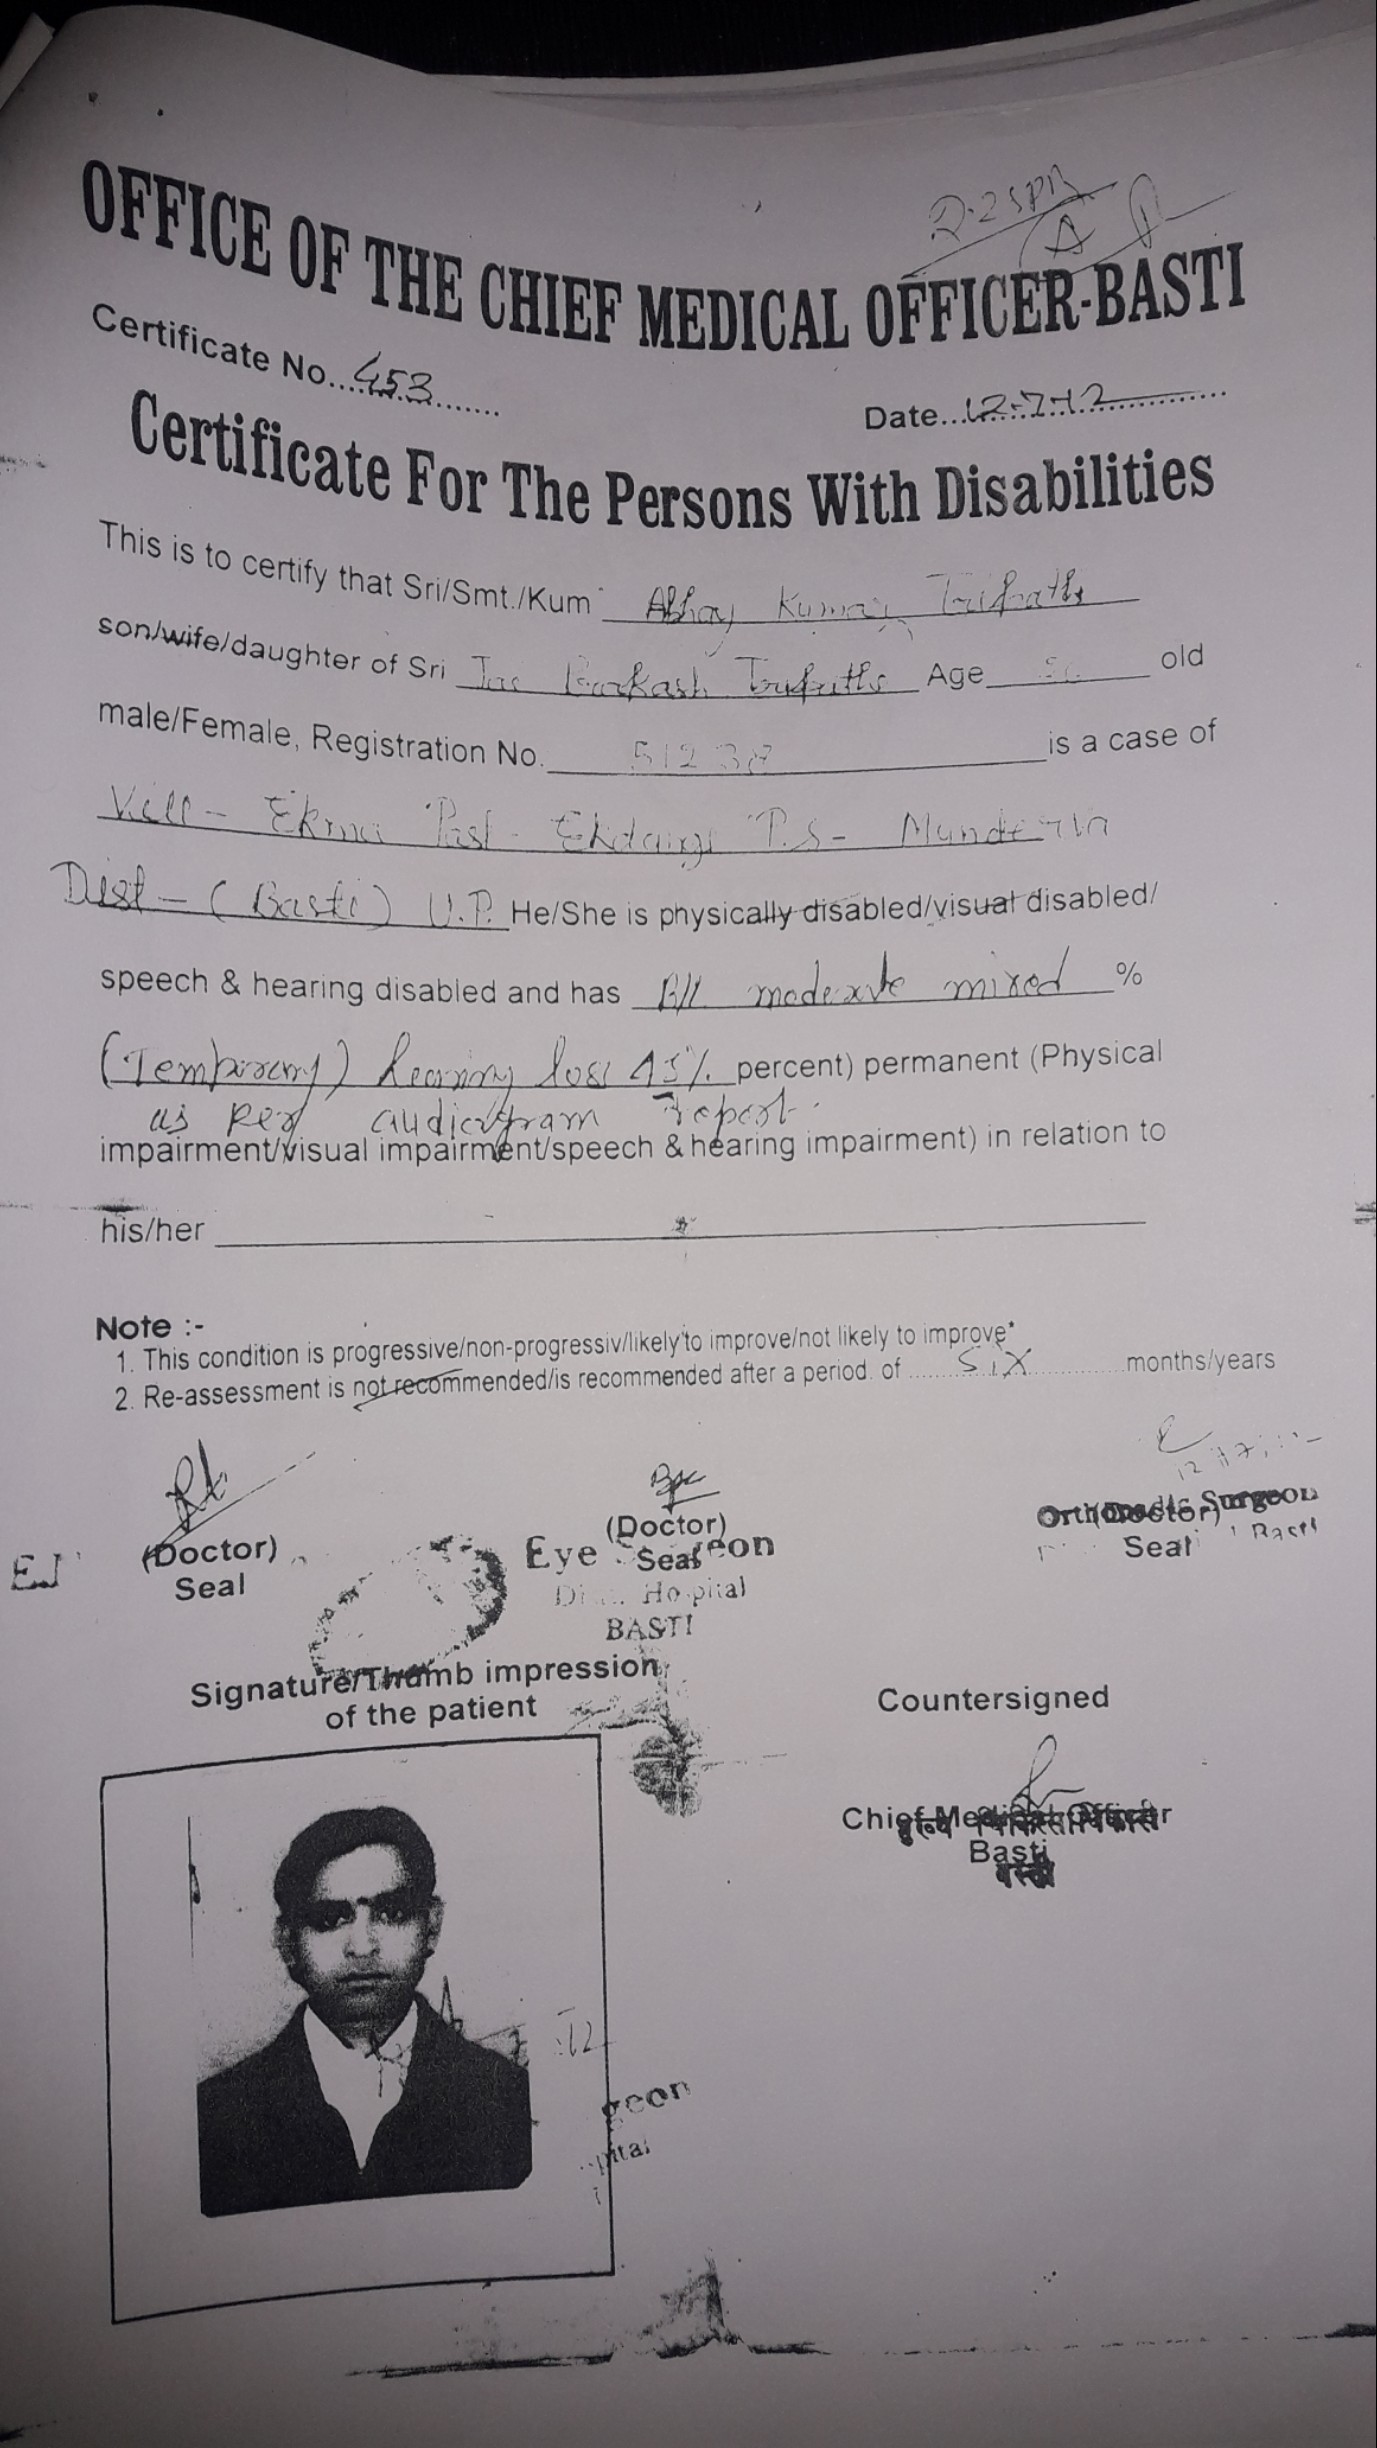 OFFICE OF THE CHIEF MEDICAL OFFICER-BASTI
Certificate No....453........
Date...12-7-12............
Certificate For The Persons With Disabilities
This is to certify that Sri/Smt./Kum Abhay Kumar Tripathi
son/wife/daughter of Sri Prakash Tripathi Age old
male/Female, Registration No. is a case of
Vill - Ekma Post - Ekdangi P.S - Munderwa
Dist - (Basti) U.P. He/She is physically disabled/visual disabled/
speech & hearing disabled and has B/L moderate mixed %
(Temporary) hearing loss 45% percent) permanent (Physical
as per audiogram report.
impairment/visual impairment/speech & hearing impairment) in relation to
his/her
Note :-
1. This condition is progressive/non-progressiv/likely to improve/not likely to improve*
2. Re-assessment is not recommended/is recommended after a period. of ........SIX............months/years
(Doctor)
Seal
(Doctor)
Eye Surgeon
Seal
Hospital
BASTI
12
Orthopaedic Surgeon
(Doctor)
Seal
Basti
Signature/Thumb impression
of the patient
Countersigned
Chief Medical Officer
Basti
बस्ती
12
geon
pital